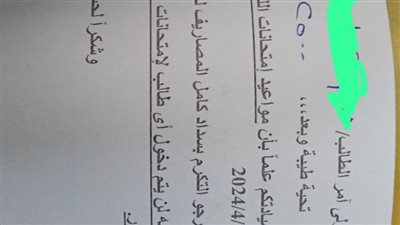 لى أمر الطالب/
تحية طيبة وبعد،،،،
يادتكم علماً بأن مواعيد امتحانات
2024/4/
رجو التكرم بسداد كامل المصاريف
ه لن يتم دخول أى طالب لإمتحانات
وشكراً